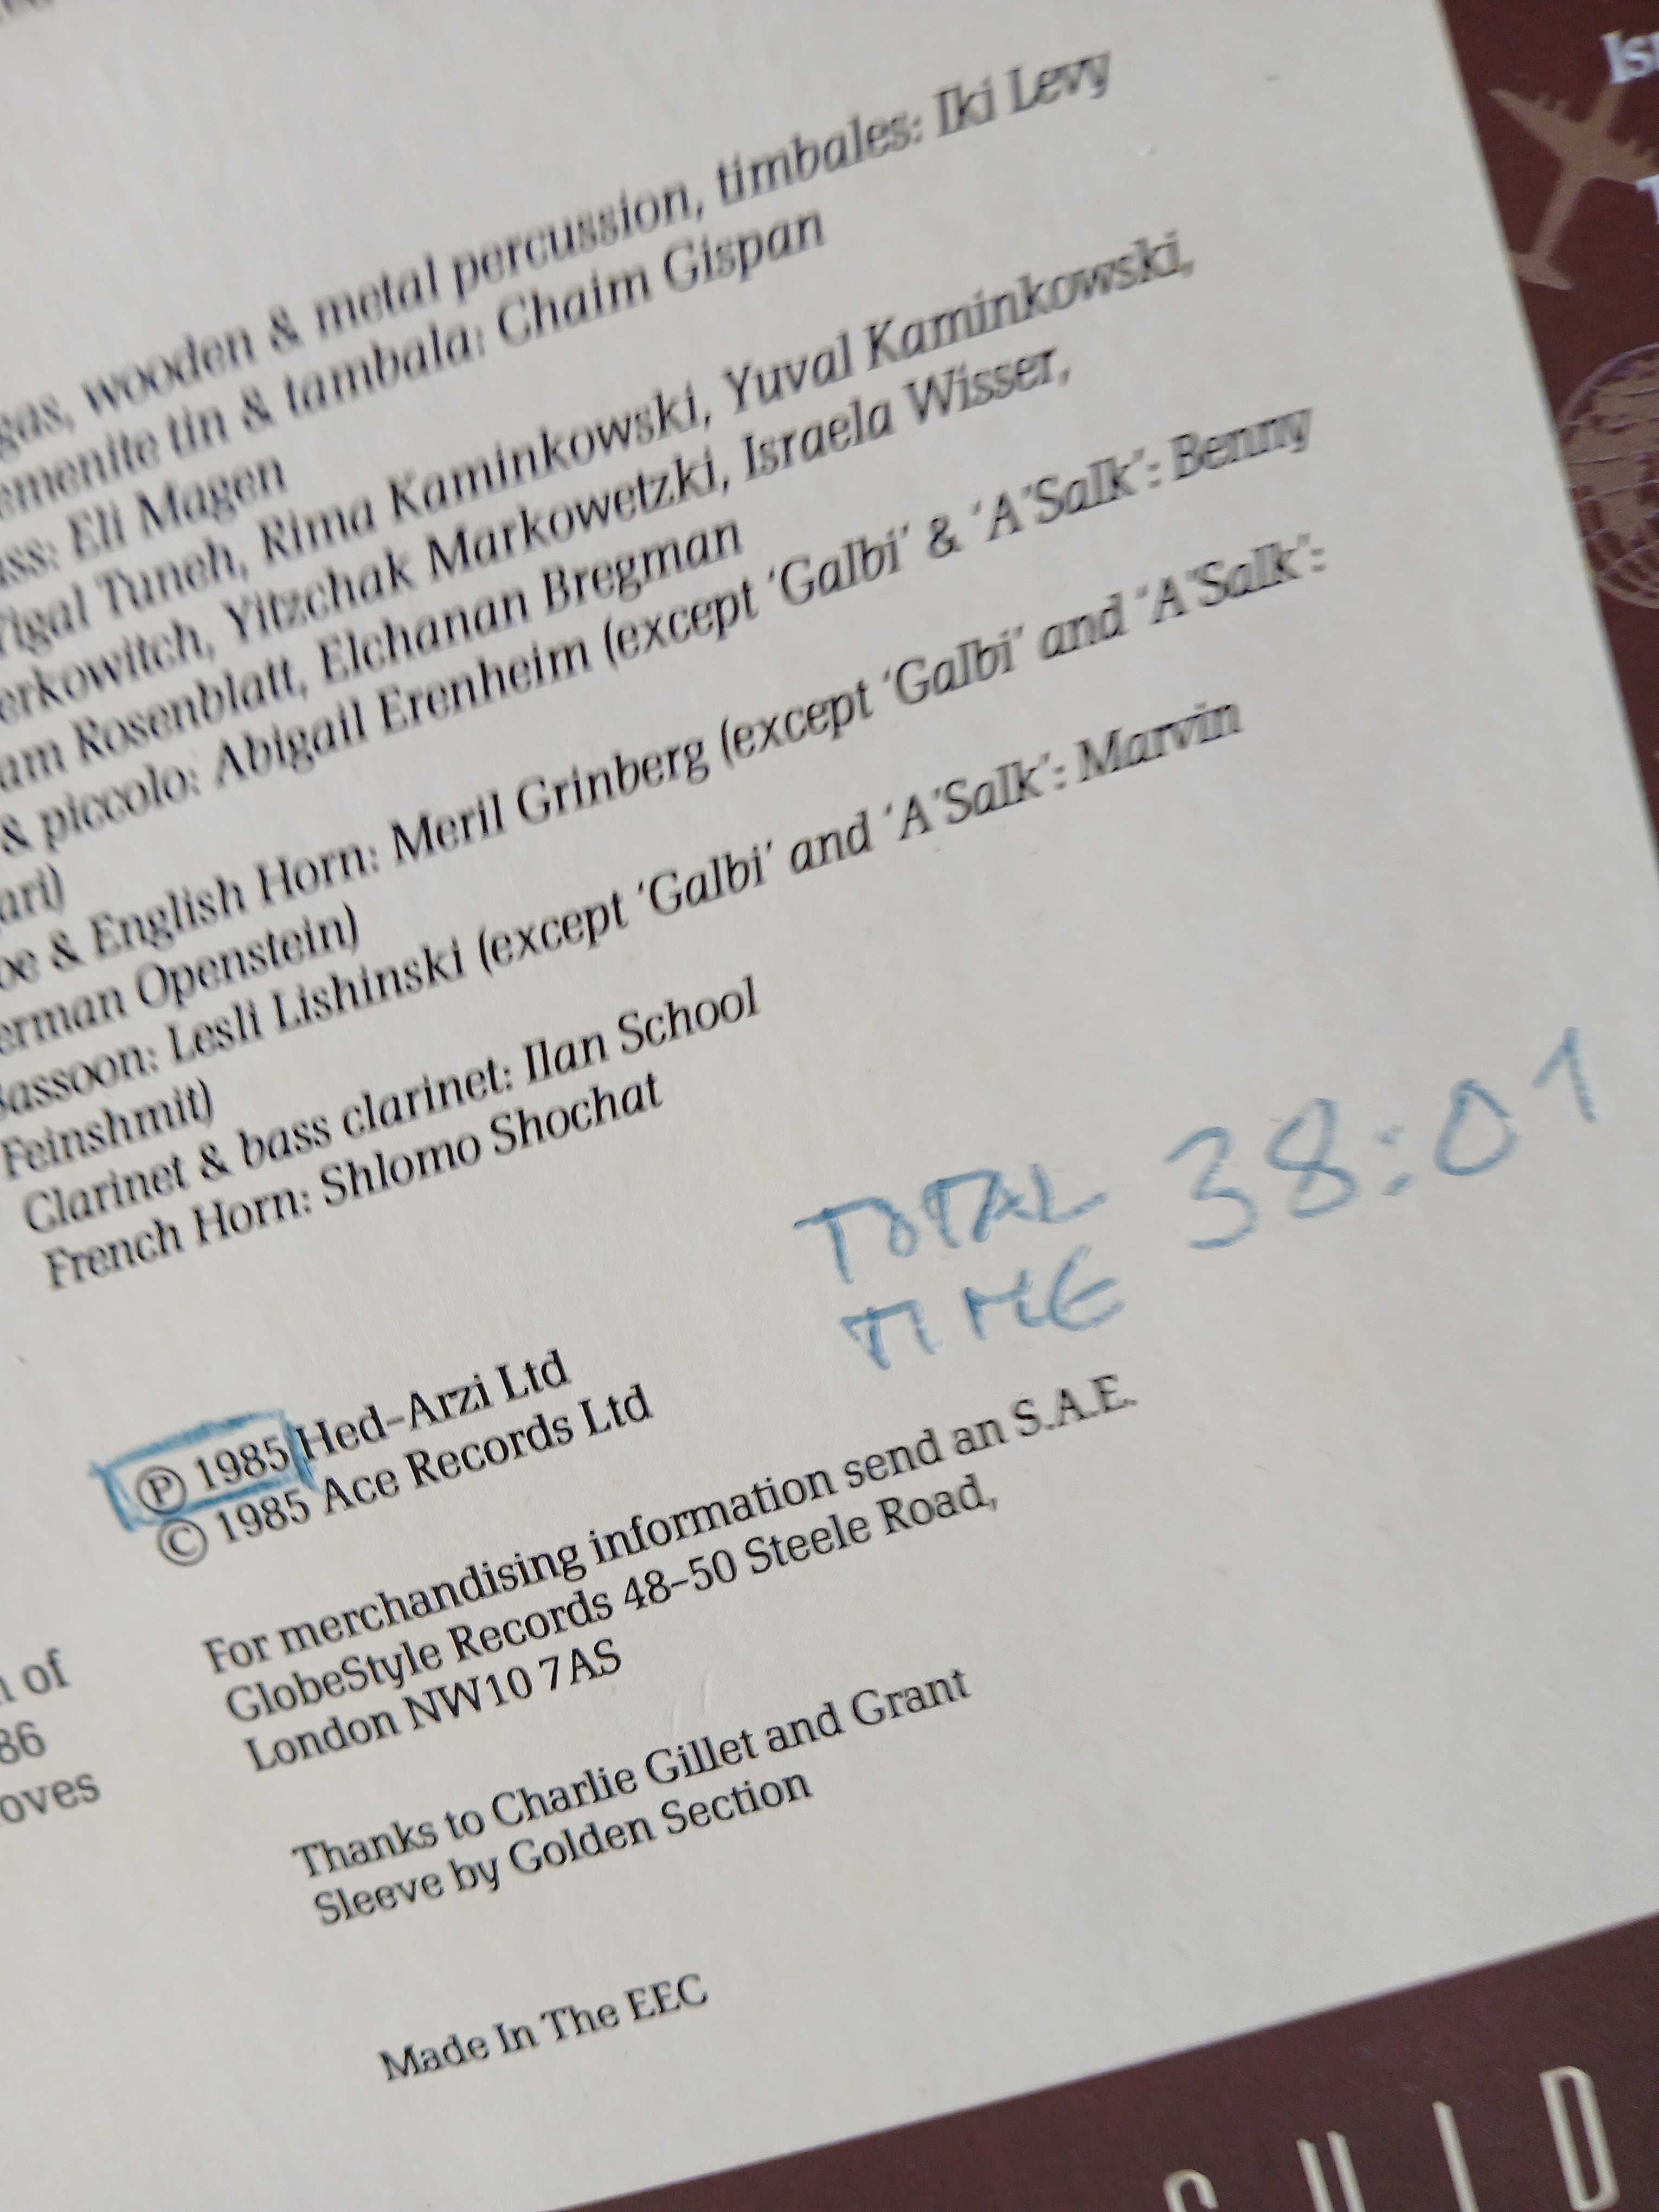 wooden & metal percussion, timbales: Iki Levy
tin & tambala: Chaim Gispan
Eli Magen
Tuneh, Rima Kaminkowski, Yuval Kaminkowski,
Yitzchak Markowetzki, Israela Wisser,
Rosenblatt, Elchanan Bregman
& piccolo: Abigail Erenheim (except 'Galbi' & 'A'Salk': Benny
& English Horn: Meril Grinberg (except 'Galbi' and 'A'Salk':
Openstein)
Bassoon: Lesli Lishinski (except 'Galbi' and 'A'Salk': Marvin
Feinshmit)
Clarinet & bass clarinet: Ilan School
French Horn: Shlomo Shochat
TOTAL TIME 38:01
℗ 1985 Hed-Arzi Ltd
© 1985 Ace Records Ltd
For merchandising information send an S.A.E.
GlobeStyle Records 48-50 Steele Road,
London NW10 7AS
Thanks to Charlie Gillet and Grant
Sleeve by Golden Section
Made In The EEC
of
86